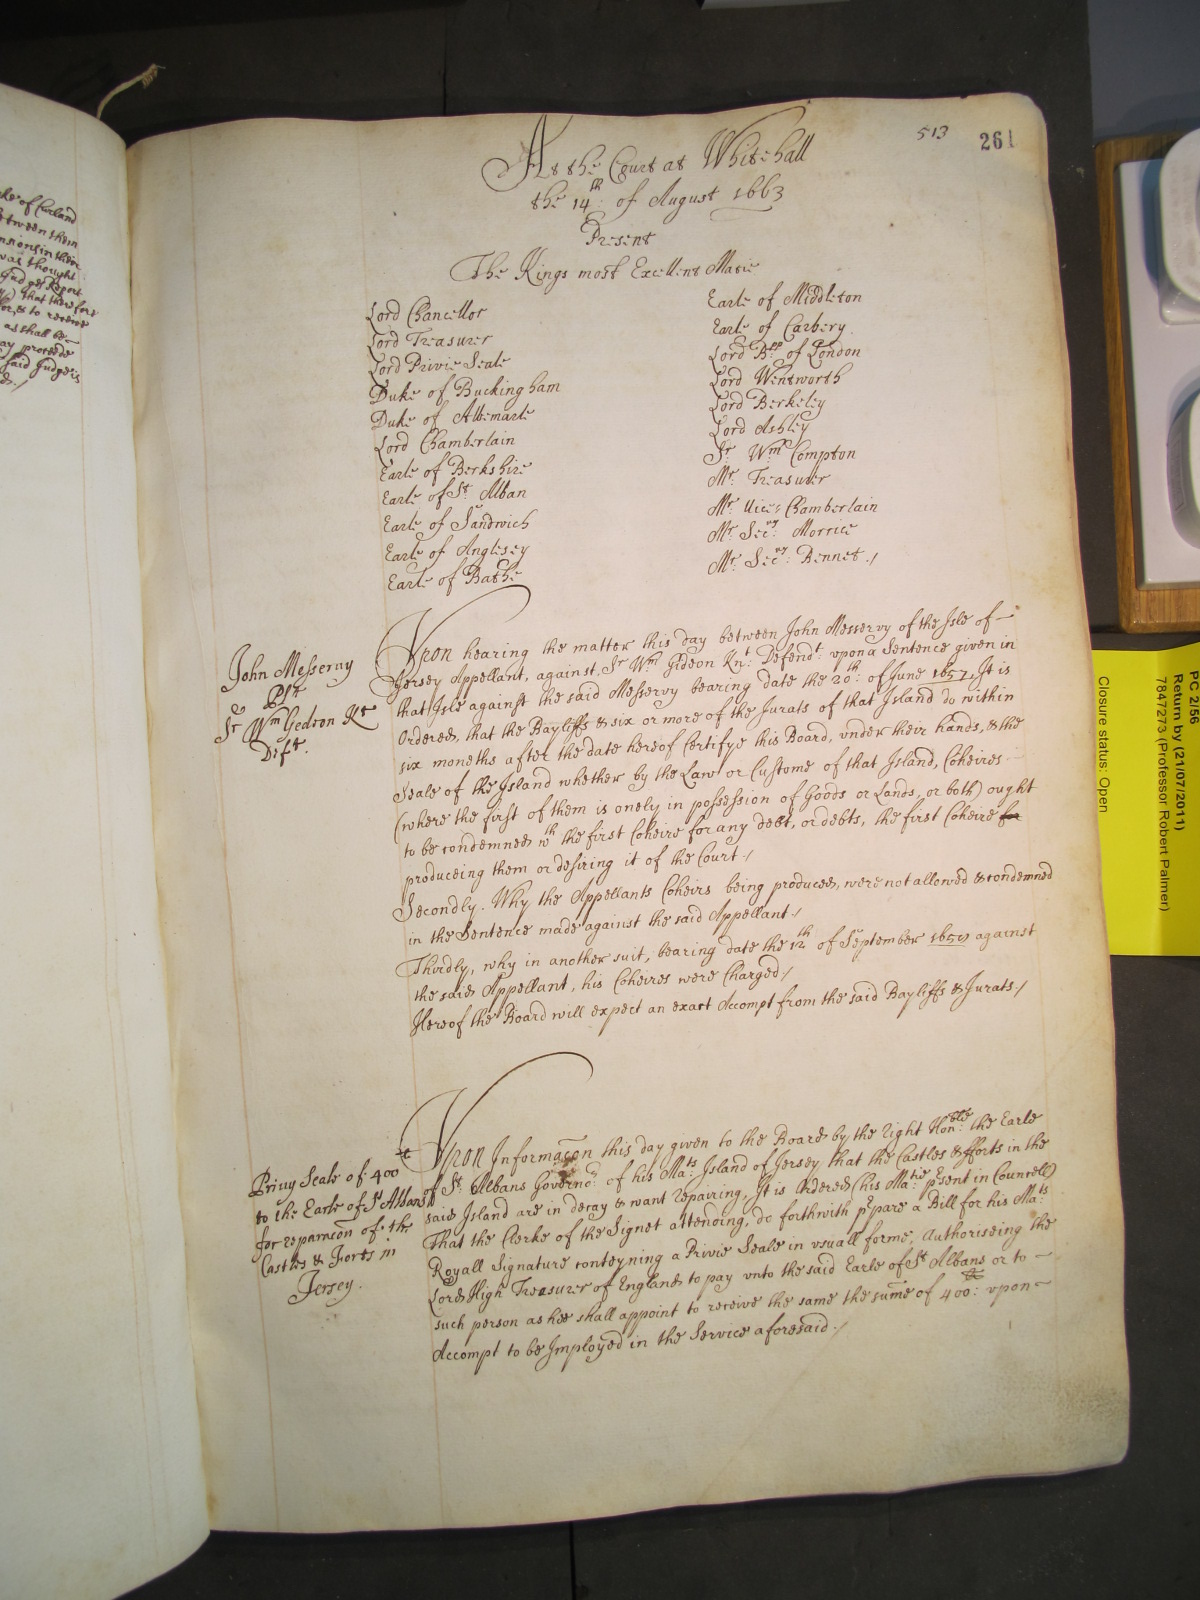 513
261
At the Court at Whitehall
the 14th: of August 1663
Present
The Kings most Excellent Matie
Lord Chancellor
Lord Treasurer
Lord Privie Seale
Duke of Buckingham
Duke of Albemarle
Lord Chamberlain
Earle of Berkshire
Earle of St. Alban
Earle of Sandwich
Earle of Anglesey
Earle of Bathe
Earle of Middleton
Earle of Carbery
Lord Bpp of London
Lord Wentworth
Lord Berkeley
Lord Ashley
Sr. Wm Compton
Mr. Treasurer
Mr. Vice-Chamberlain
Mr. Secry: Morrice
Mr. Secry: Bennet./
John Messervy
Plt
&
Sr Wm Gedeon Kt
Deft.
Vpon hearing the matter this day between John Messervy of the Isle of
Jersey Appellant, against Sr Wm Gideon Knt: Defendt: vpon a Sentence given in
that Isle against the said Messervy bearing date the 20th: of June 1657, It is
Ordered, that the Bayliffs & six or more of the Jurats of that Island do within
six moneths after the date hereof Certifye this Board, vnder their hands, & the
Seale of the Island whether by the Law or Custome of that Island, Coheires
(where the first of them is onely in possession of Goods or Lands, or both) ought
to be condemned wth the first Coheire for any debt, or debts, the first Coheire for
produceing them or desiring it of the Court./
Secondly. Why the Appellants Coheirs being produced, were not allowed & condemned
in the Sentence made against the said Appellant./
Thirdly, why in another suit, bearing date the 12th of September 1659 against
the said Appellant, his Coheires were Charged./
Hereof the Board will expect an exact Accompt from the said Bayliffs & Jurats./
Privy Seale of 400li
to the Earle of St Albans
for reparacon of the
Castles & Forts in
Jersey.
Vpon Informacon this day given to the Board by the right Honble: the Earle
of St. Albans Governor of his Mats: Island of Jersey that the Castles & fforts in the
said Island are in decay & want repairing, It is Ordered (his Matie present in Councell)
That the Clerke of the Signet attending, do forthwith prepare a Bill for his Mats
Royall Signature conteyning a Privie Seale in vsuall forme, Authoriseing the
Lord High Treasurer of England to pay vnto the said Earle of St Albans or to
such person as hee shall appoint to receive the same the sume of 400li: vpon
Accompt to be Imployed in the Service aforesaid./
PC 2/56
Return by (21/07/2011)
7847273 (Professor Robert Palmer)
Closure status: Open